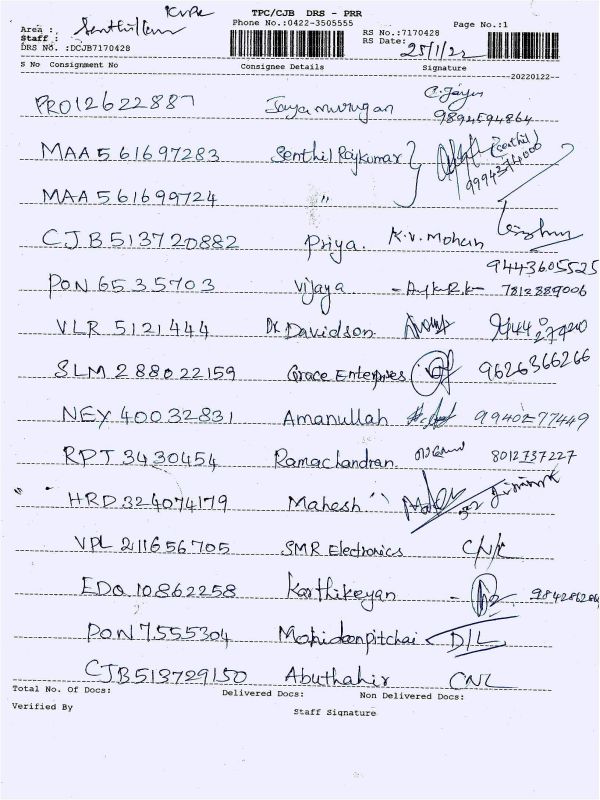 KVPR TPC/CJB DRS - PRR
Area : Senthil
Phone No.:0422-3505555 Page No.:1
Staff : RS No.:7170428
DRS No. :DCJB7170428 RS Date: 25/1/22
S No Consignment No Consignee Details Signature
20220122
PRO12622887 Jaya murugan C. Jayu 9894594864
MAA 561697283 Senthil Rajkumar (Senthil) 9994274000
MAA 561699724 "
CJB 513720882 Priya. K.V. Mohan 9443605525
PON 6535703 Vijaya 7812889006
VLR 5121444 Dr. Davidson
SLM 288022159 Grace Enterprises 9626366266
NEY 40032831 Amanullah 9940277449
RPT 3430454 Ramachandran. 8012737227
HRD 324074179 Mahesh
VPL 211656705 SMR Electronics C/N/L
EDQ 10862258 Karthikeyan
PON 7555304 Mohideenpitchai D/L
CJB513729150 Abuthahir CNL
Total No. Of Docs: Delivered Docs: Non Delivered Docs:
Verified By Staff Signature